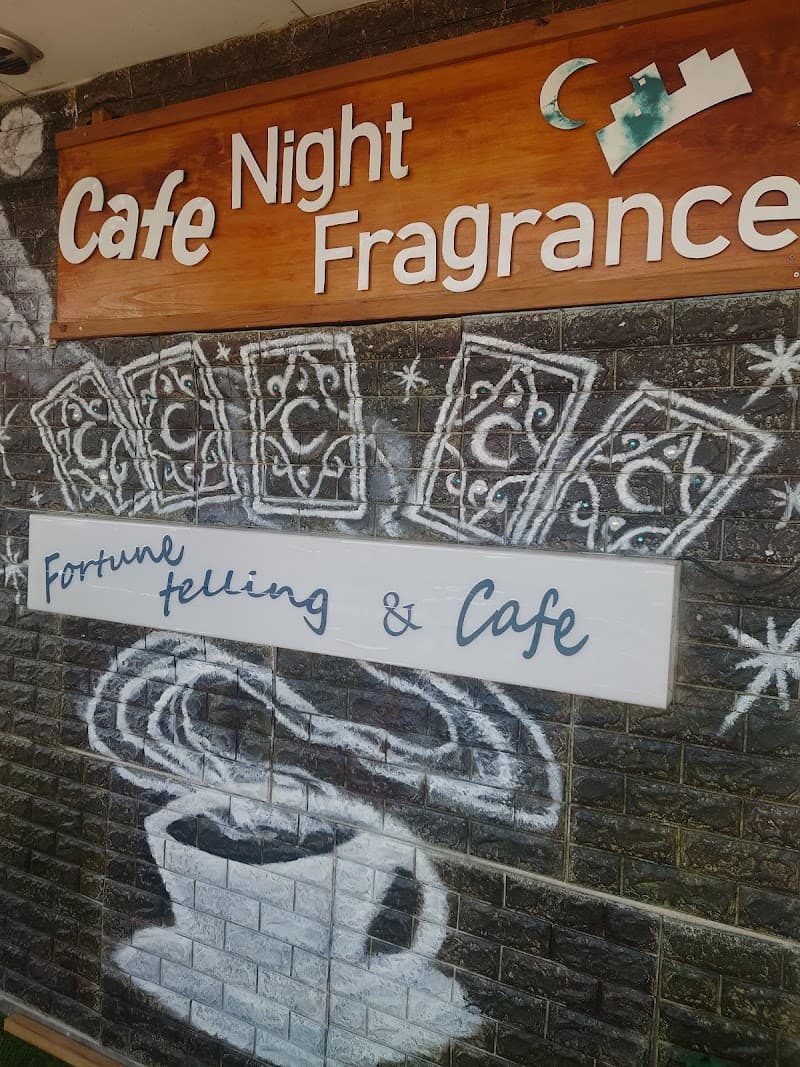 Cafe Night
Fragrance
Fortune
telling & Cafe